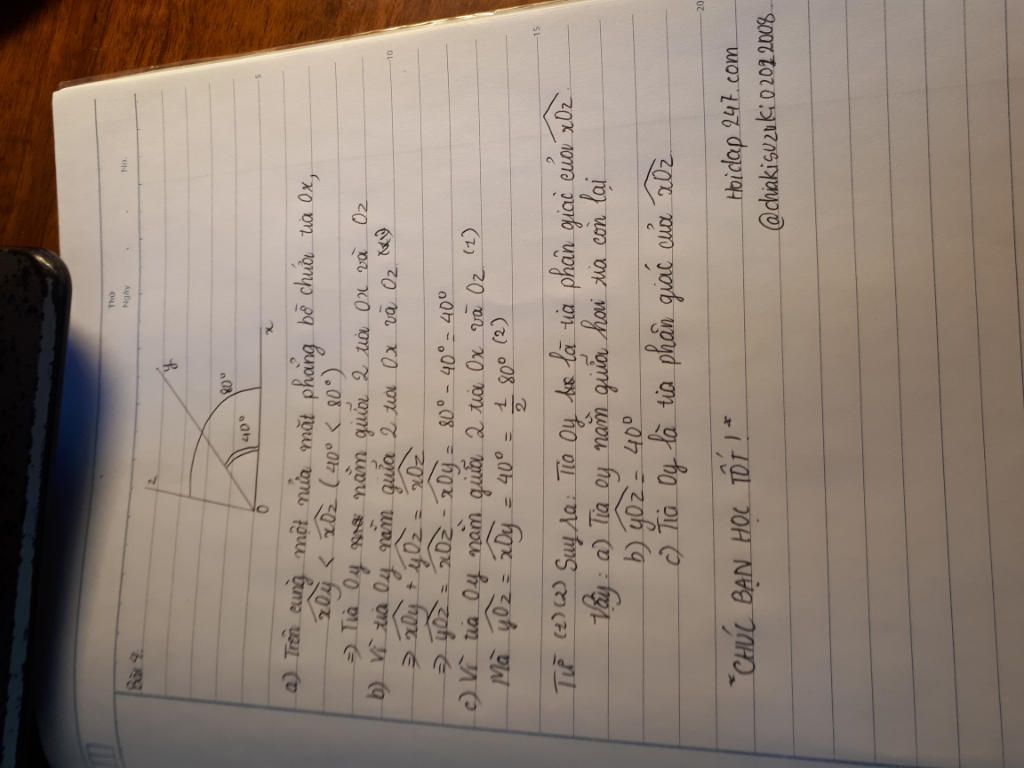 Thứ
Ngày
No.
Bài 9.
z
y
80°
40°
O
x
5
a) Trên cùng một nửa mặt phẳng bờ chứa tia Ox,
xOy < xOz (40° < 80°)
=> Tia Oy nằm giữa 2 tia Ox và Oz
b) Vì tia Oy nằm giữa 2 tia Ox và Oz
10
=> xOy + yOz = xOz
=> yOz = xOz - xOy = 80° - 40° = 40°
c) Vì tia Oy nằm giữa 2 tia Ox và Oz (1)
Mà yOz = xOy = 40° = 1/2 80° (2)
15
Từ (1)(2) Suy ra: Tia Oy là tia phân giác của xOz.
Vậy: a) Tia Oy nằm giữa hai tia còn lại
b) yOz = 40°
c) Tia Oy là tia phân giác của xOz
20
*CHÚC BẠN HỌC TỐT!*
Hoidap247.com
@chiakisuzuki02022008